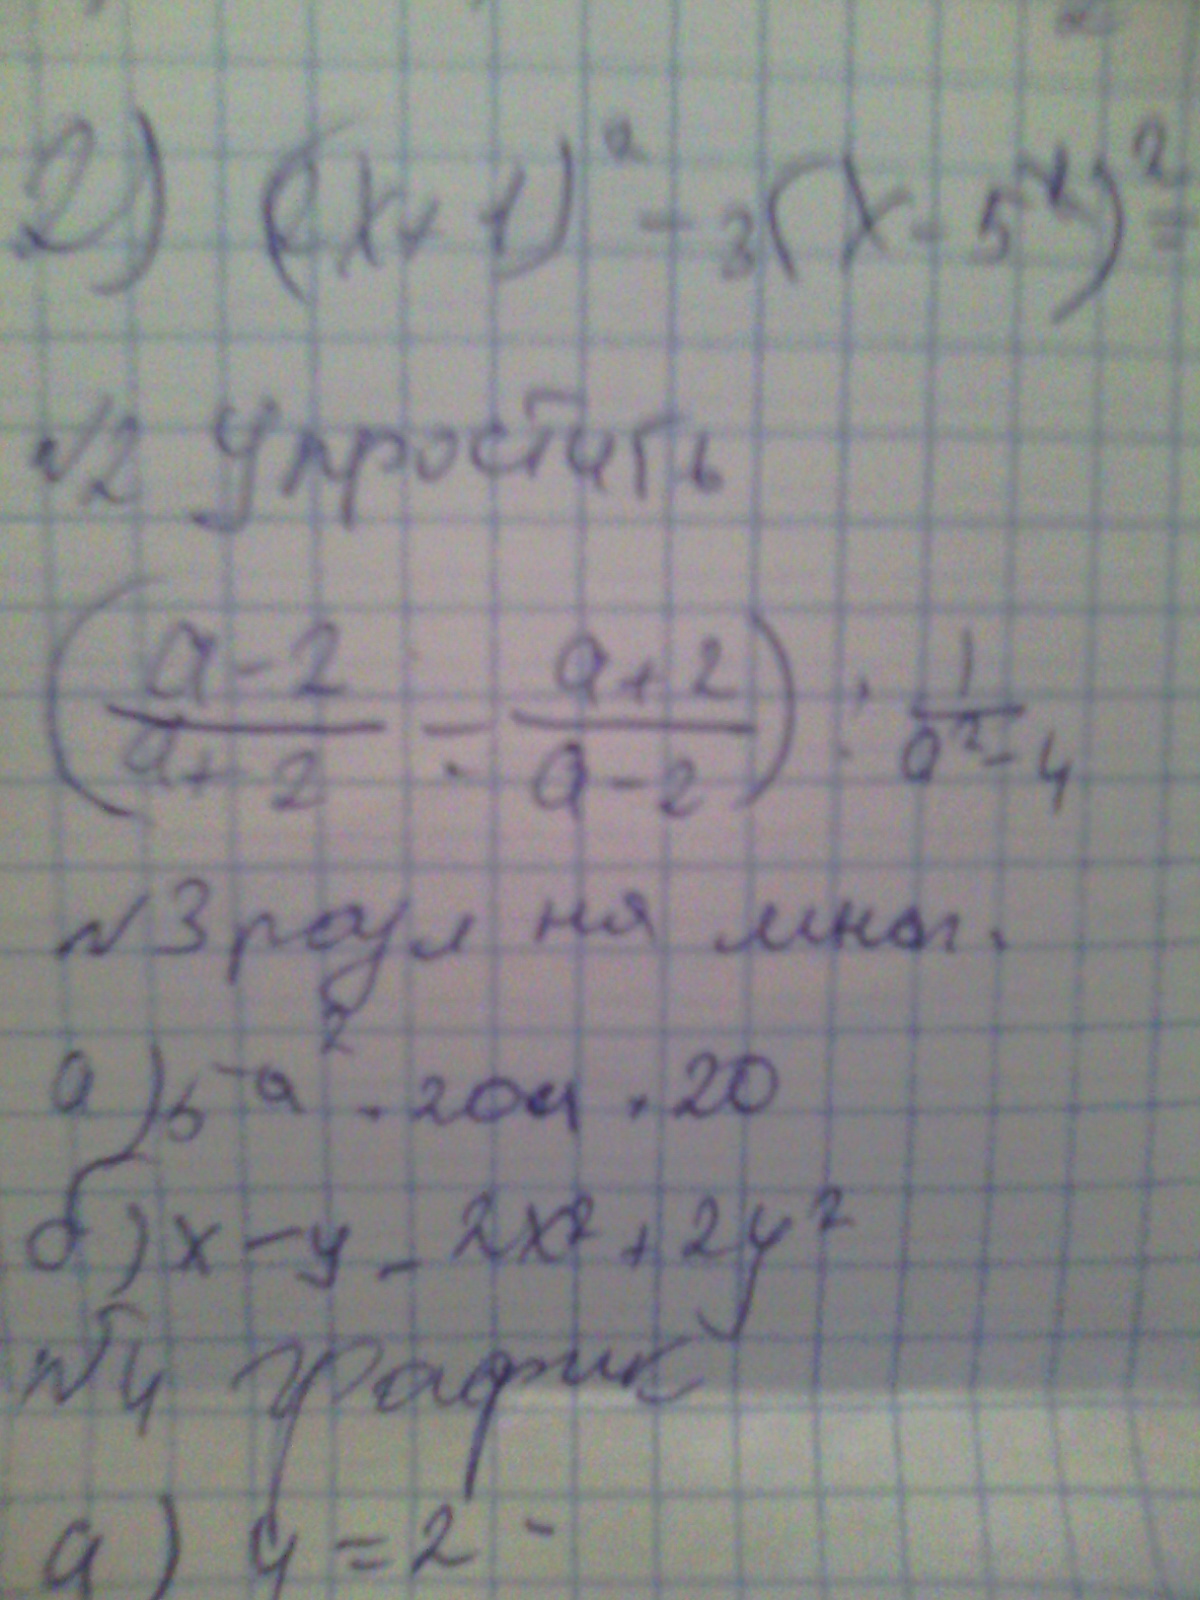 2) (2x+1)² - 3(x-5x)² =
№2 Упростить
(a-2/a+2 - a+2/a-2) : 1/a²-4
№3 разл на мног.
а) 5-a² - 20a - 20
б) x-y-2x²+2y²
№4 график
а) y=2-